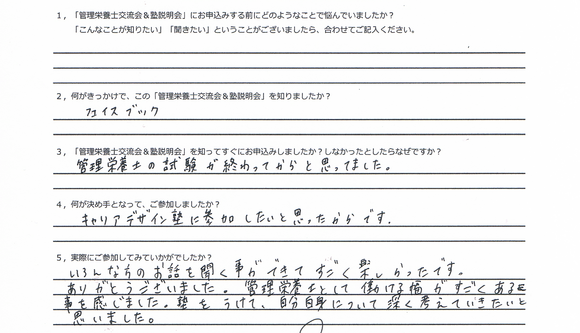 1，「管理栄養士交流会＆塾説明会」にお申込みする前にどのようなことで悩んでいましたか？
「こんなことが知りたい」「聞きたい」ということがございましたら、合わせてご記入ください。
2，何がきっかけで、この「管理栄養士交流会＆塾説明会」を知りましたか？
フェイスブック
3，「管理栄養士交流会＆塾説明会」を知ってすぐにお申込みしましたか？しなかったとしたらなぜですか？
管理栄養士の試験が終わってからと思ってました。
4，何が決め手となって、ご参加しましたか？
キャリアデザイン塾に参加したいと思ったからです。
5，実際にご参加してみていかがでしたか？
いろんな方のお話を聞く事ができてすごく楽しかったです。
ありがとうございました。管理栄養士として働ける幅がすごくある
事を感じました。塾をうけて、自分自身について深く考えていきたいと
思いました。